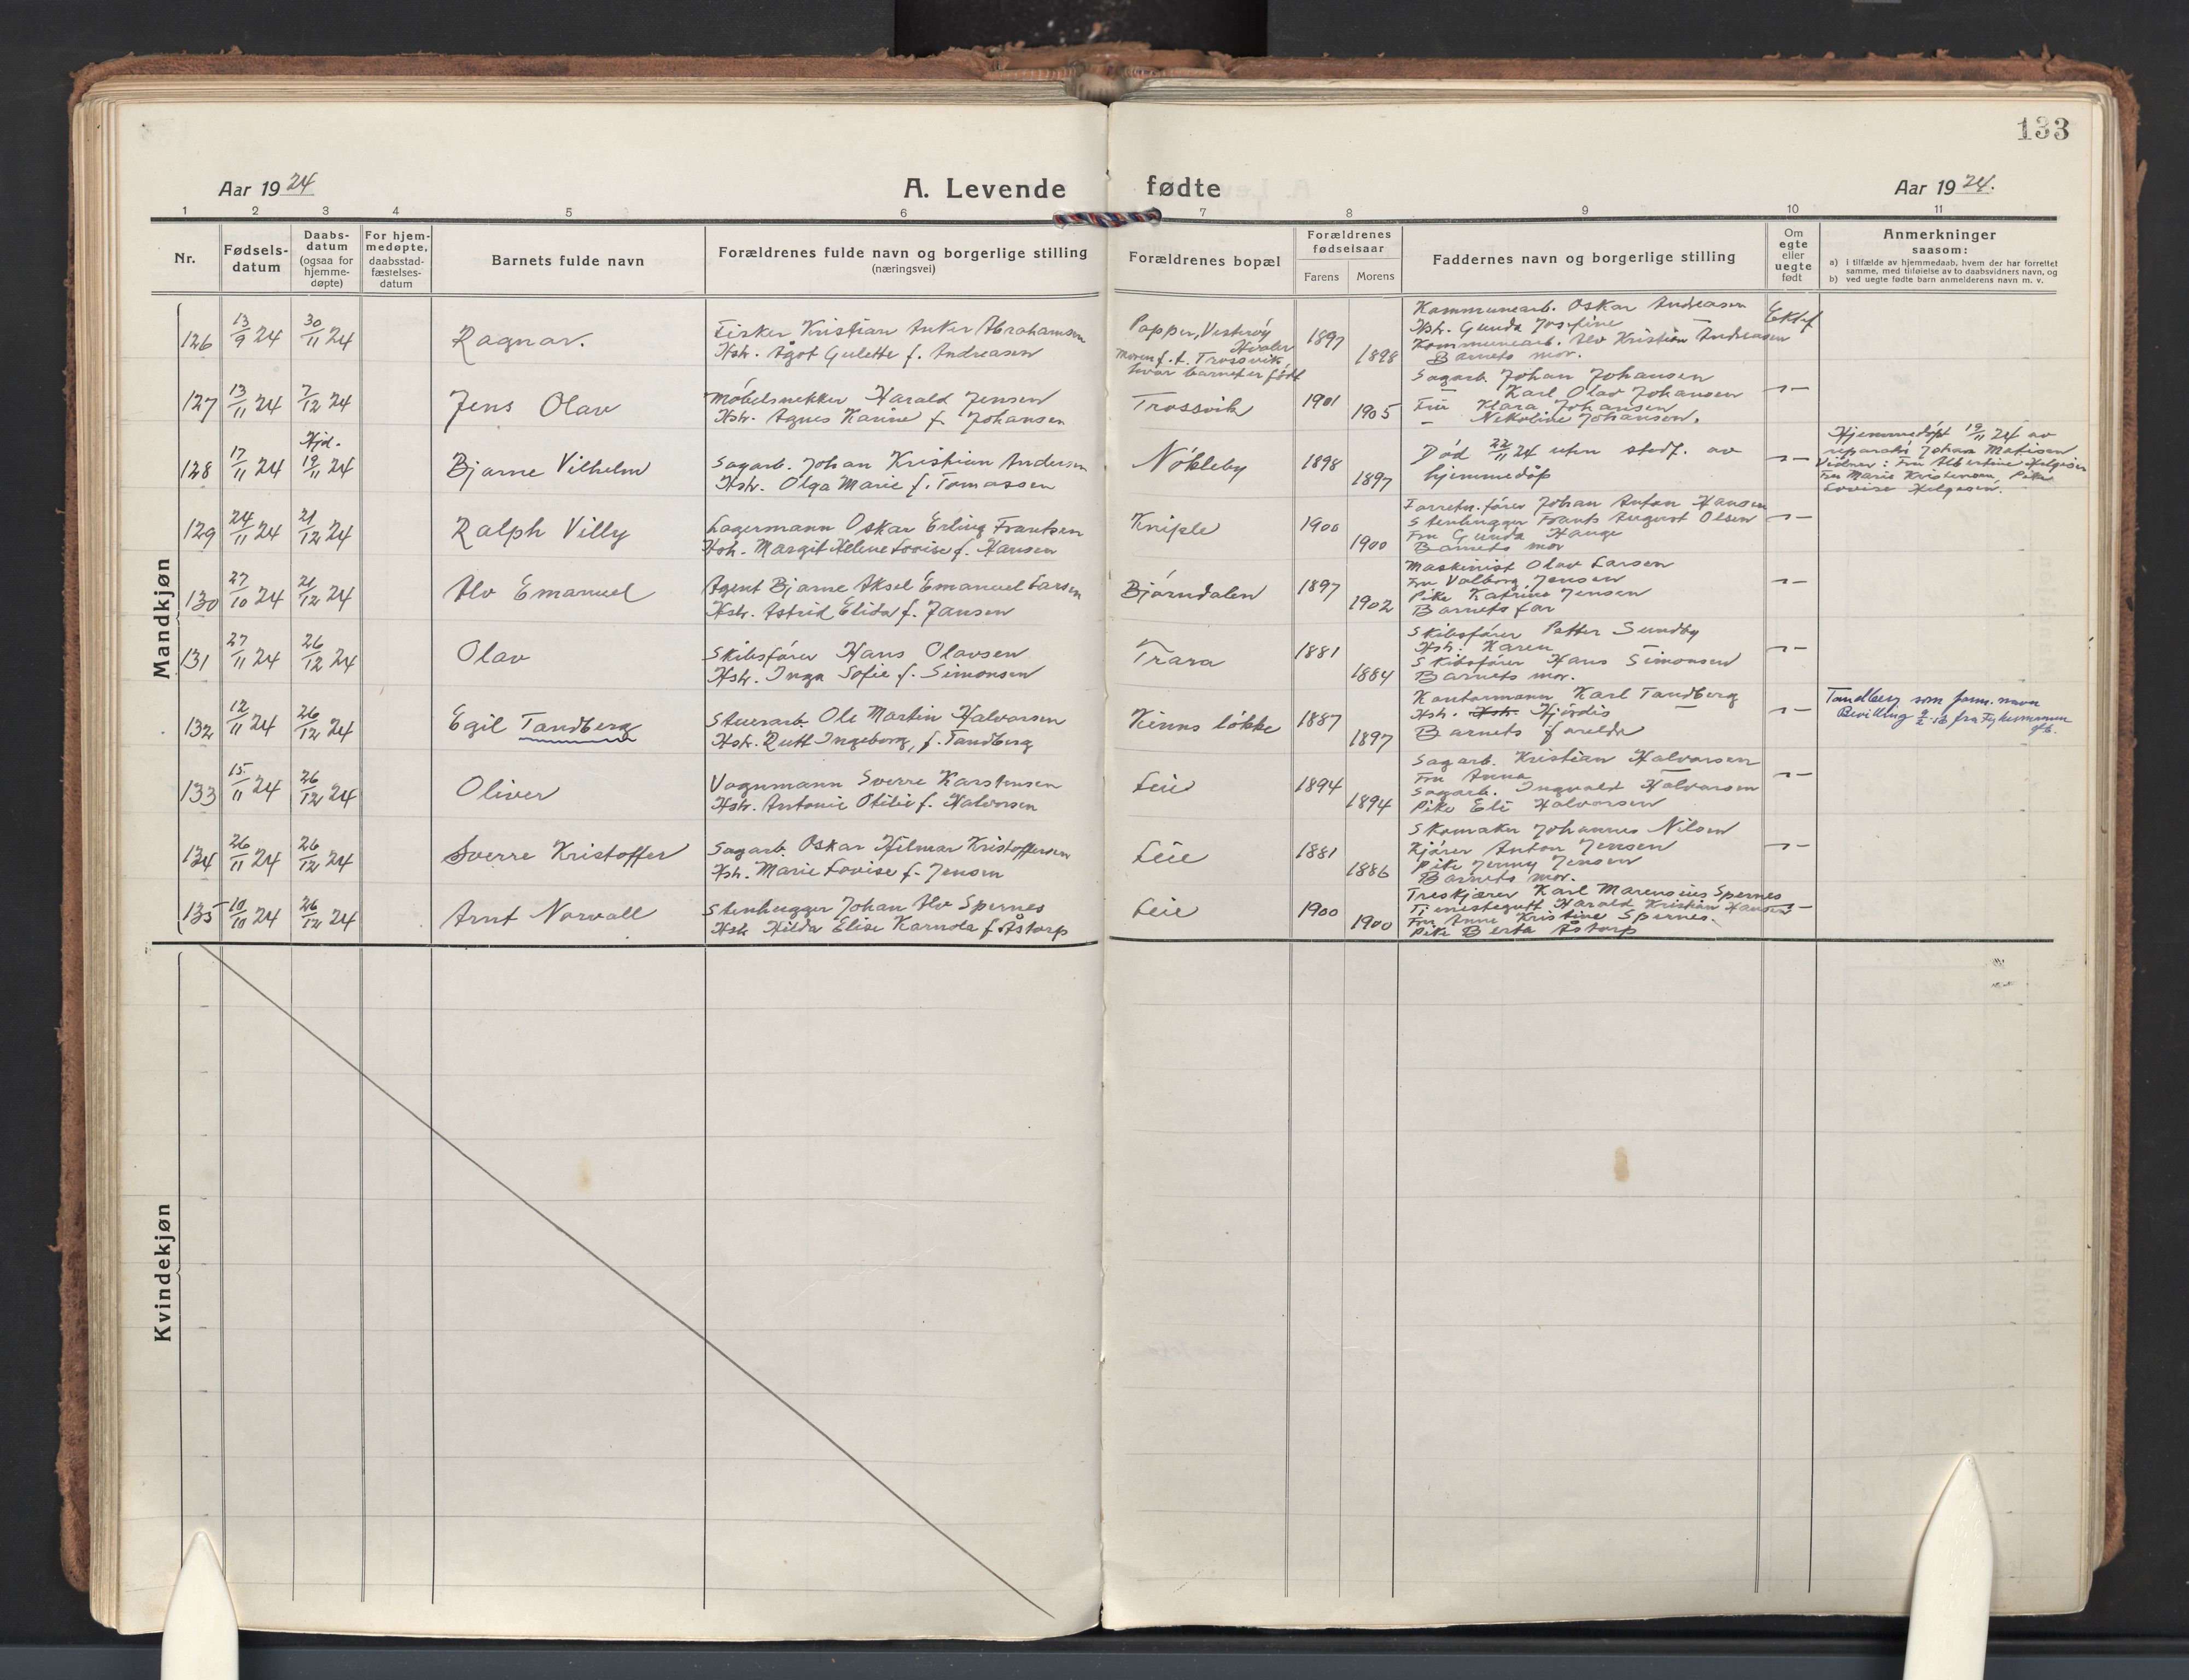 133
Aar 1924
A. Levende fødte
Aar 1924.
1 2 3 4 5 6 7 8 9 10 11
Nr.
Fødsels-
datum
Daabs-
datum
(ogsaa for
hjemme-
døpte)
For hjem-
medøpte,
daabsstad-
fæstelses-
datum
Barnets fulde navn
Forældrenes fulde navn og borgerlige stilling
(næringsvei)
Forældrenes bopæl
Forældrenes
fødselsaar
Farens
Morens
Faddernes navn og borgerlige stilling
Om
egte
eller
uegte
født
Anmerkninger
saasom:
a) i tilfælde av hjemmedaab, hvem der har forrettet
samme, med tilføielse av to daabsvidners navn, og
b) ved uegte fødte barn anmelderens navn m. v.
Mandkjøn
126 13/9 24 30/11 24 Ragnar.
Fisker Kristian Anker Abrahamsen
Hstr. Ågot Gulette f. Andreasen
Papper, Vesterøy
Hvaler
Moren f. t. Trossvik,
hvor barnet er født
1897 1898
Kommunearb. Oskar Andreasen
Hstr. Gunda Josefine
Kommunearb. Alv Kristian Andreasen
Barnets mor.
Ektef
127 13/11 24 7/12 24 Jens Olav
Møbelsnekker Harald Jensen
Hstr. Agnes Karine f. Johansen
Trossvik
1901 1905
Sagarb. Johan Johansen
— Karl Olav Johansen
Fru Klara Johansen
— Nikoline Johansen.
—"—
128 17/11 24 Hjd. 19/11 24 Bjarne Vilhelm
Sagarb. Johan Kristian Andersen
Hstr. Olga Marie f. Tomassen
Nøkleby
1898 1897
Død 22/11 24 uten stadf. av
hjemmedåp
—"—
Hjemmedøpt 19/11 24 av
reparatør Johan Matisen
Vidner: Fru Albertine Helgesen
Fru Marie Kristensen, Pike
Lovise Helgesen.
129 24/11 24 21/12 24 Ralph Villy
Lagermann Oskar Erling Frantsen
Hstr. Margit Helene Lovise f. Hansen
Kniple
1900 1900
Forretn.fører Johan Anton Hansen
Stenhugger Frants August Olsen
Fru Gunda Hauge
Barnets mor
—"—
130 27/10 24 21/12 24 Alv Emanuel
Agent Bjarne Aksel Emanuel Larsen
Hstr. Astrid Elida f. Jansen
Bjørndalen
1897 1902
Maskinist Olav Larsen
Fru Valborg Jensen
Pike Katrine Jensen
Barnets far
—"—
131 27/11 24 26/12 24 Olav
Skibsfører Hans Olavsen
Hstr. Inga Sofie f. Simonsen
Trara
1881 1884
Skibsfører Petter Sundby
Hstr. Karen
Skibsfører Hans Simonsen
Barnets mor.
—"—
132 12/11 24 26/12 24 Egil Tandberg
Stuerarb. Ole Martin Halvorsen
Hstr. Rutt Ingeborg, f. Tandberg
Kinns løkke
1887 1897
Kontormann Karl Tandberg
Hstr. Hstr. Hjørdis
Barnets foreldre
—"—
Tandberg som fam. navn
Bevilling fra Fylkesmannen
133 15/11 24 26/12 24 Oliver
Vognmann Sverre Karstensen
Hstr. Antonie Otilie f. Halvorsen
Leie
1894 1894
Sagarb. Kristian Halvorsen
Fru Anna
Sagarb. Ingvald Halvorsen
Pike Eli Halvorsen
—"—
134 26/11 24 26/12 24 Sverre Kristoffer
Sagarb. Oskar Hilmar Kristoffersen
Hstr. Marie Lovise f. Jensen
Leie
1881 1886
Skomaker Johannes Nilsen
Kjører Anton Jensen
Pike Jenny Jensen
Barnets mor.
—"—
135 10/10 24 26/12 24 Arnt Norvall
Stenhugger Johan Alv Spernes
Hstr Hilda Elise Karnola f. Åstorp
Leie
1900 1900
Treskjærer Karl Marensius Spernes
Tjenestegutt Harald Kristian Hansen
Fru Anne Kristine Spernes.
Pike Berta Åstorp
—"—
Kvindekjøn